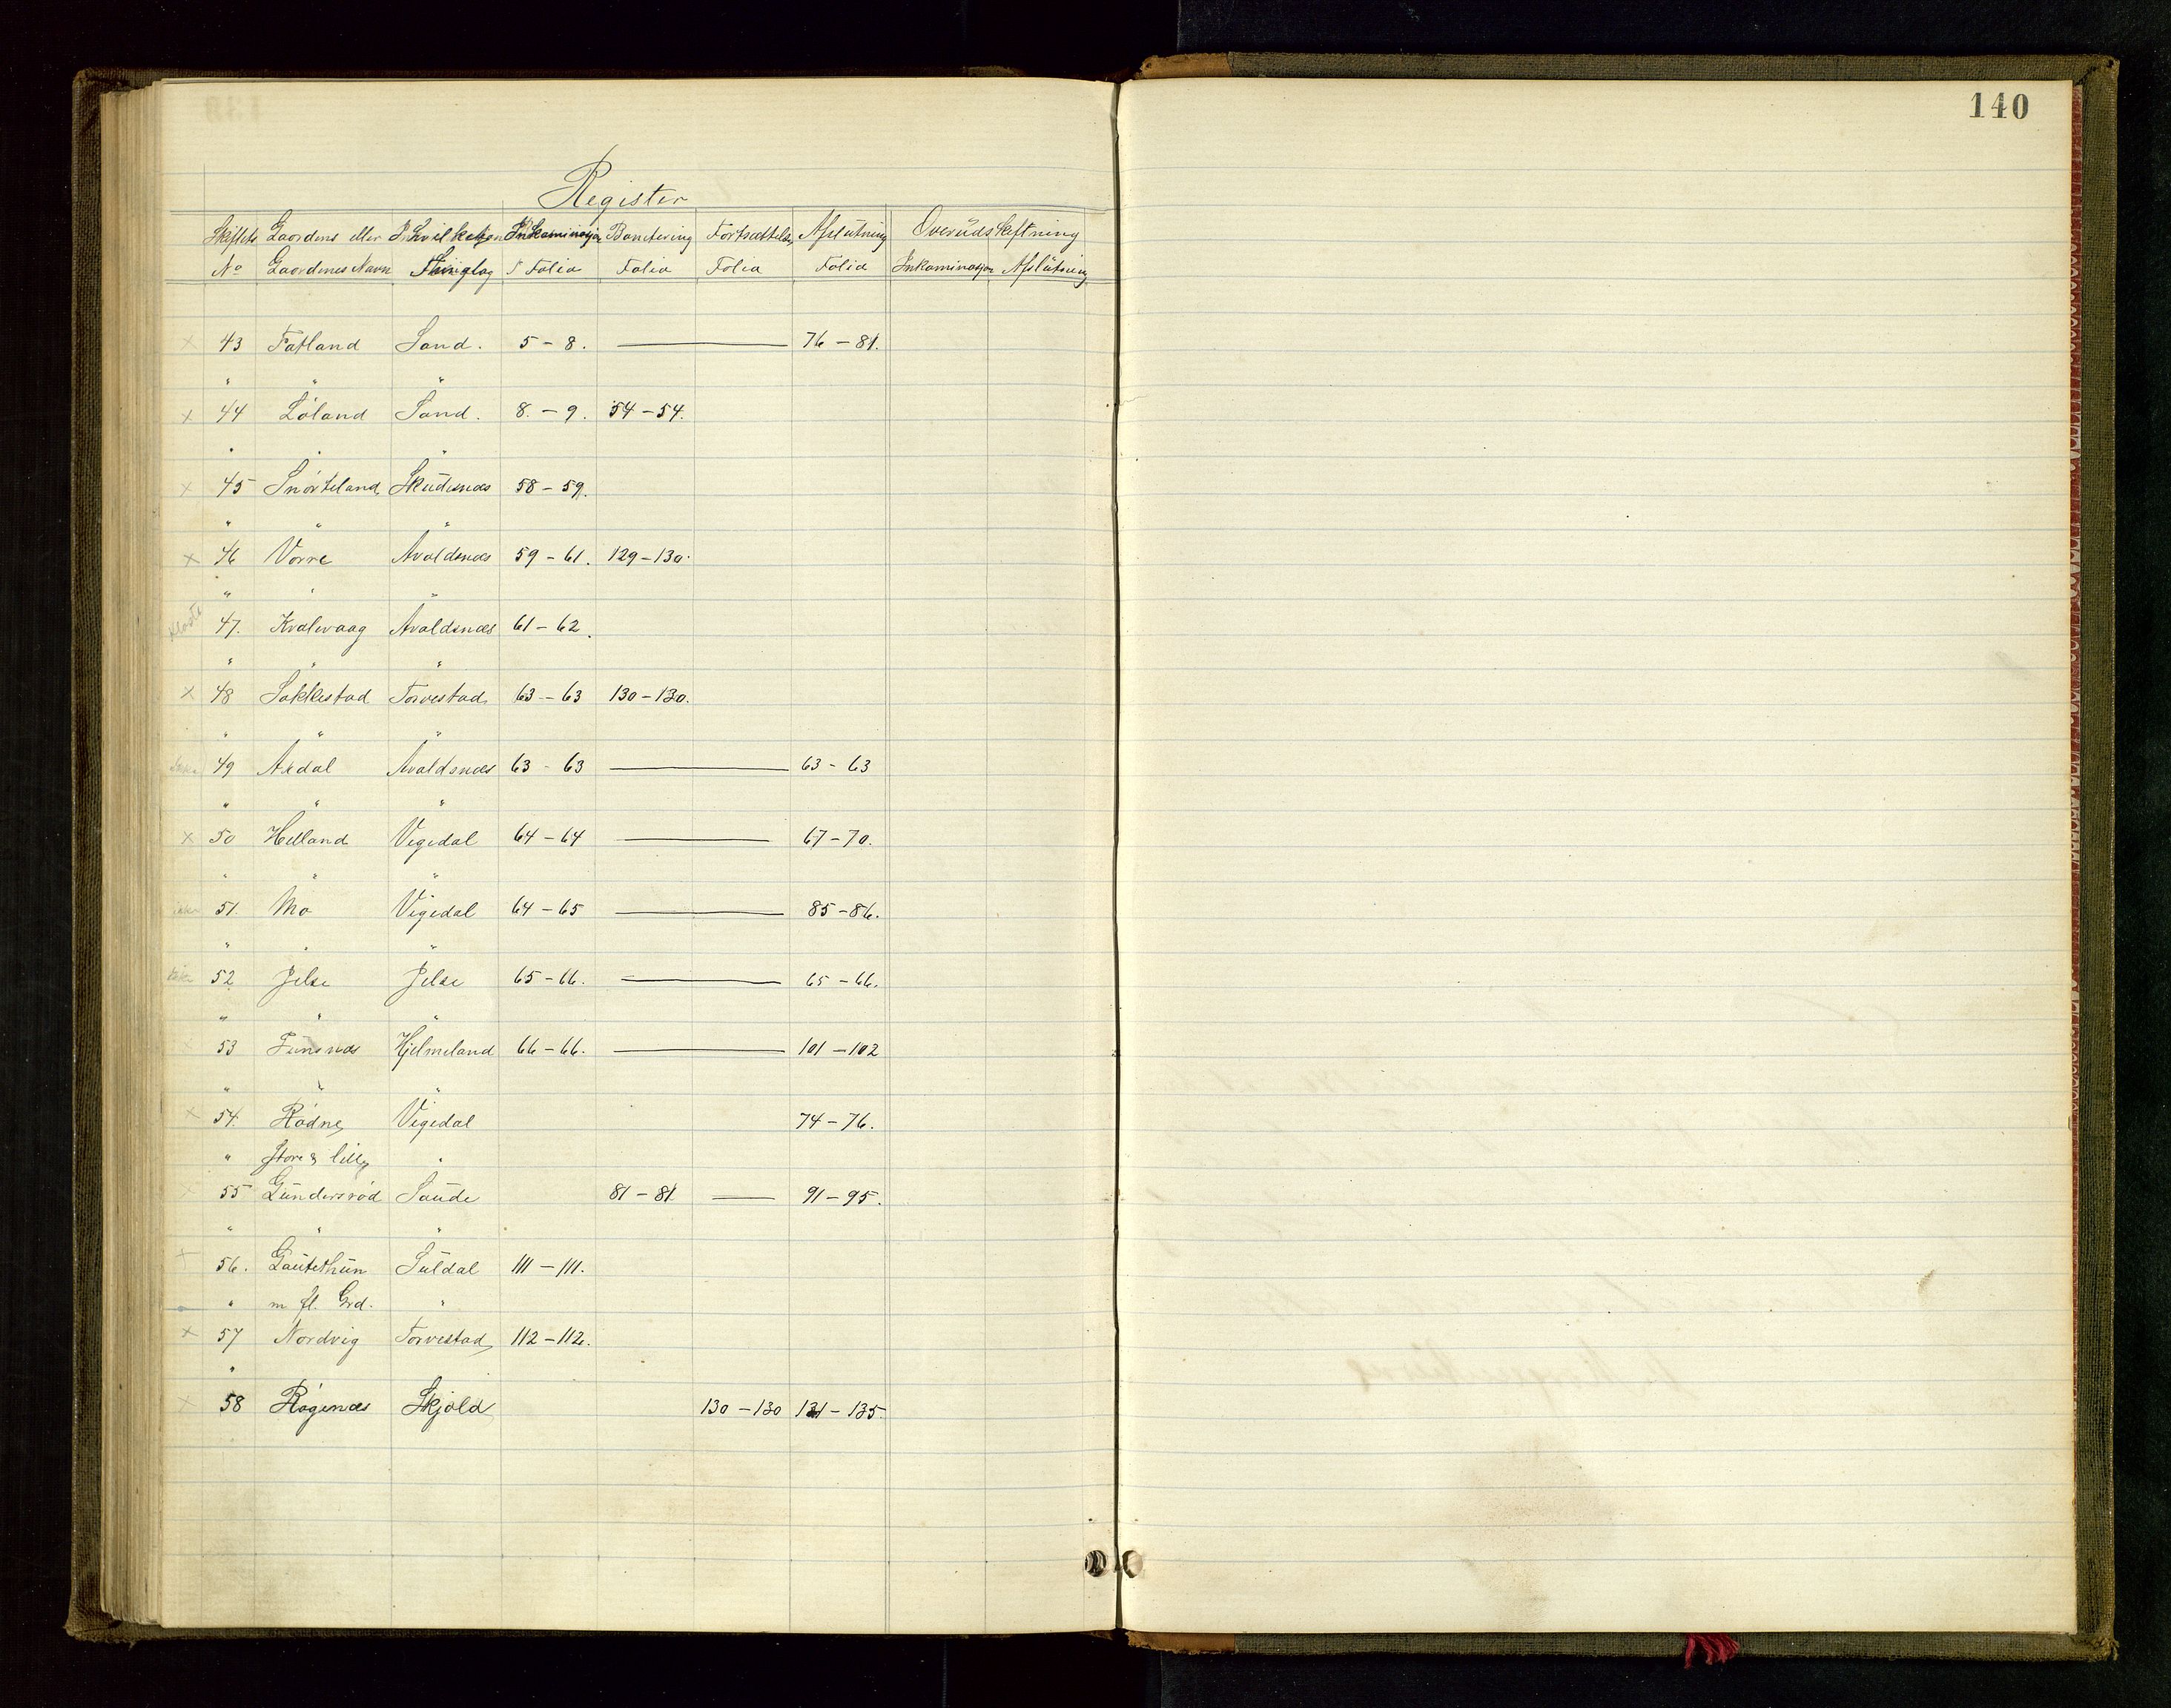 140
Register
Skiftets Gaardens eller I hvilket Inkaminasjon Bonitering Fortsættelse Afslutning Overudskiftning
No Gaardenes Navn Thinglag Folio Folio Folio Folio Inkaminasjon Afslutning
x 43 Fatland Sand. 5 – 8. 76 – 81.
" " "
x 44 Løland Sand. 8. – 9. 54 – 54.
" " "
x 45 Snørteland Skudesnæs 58 – 59.
" " "
x 46 Vorre Avaldsnæs 59 – 61. 129 – 130.
" " "
47. Kvalevaag Avaldsnæs 61 – 62.
" " "
x 48 Sakkestad Torvestad 63 – 63 130 – 130.
" " "
49 Axdal Avaldsnæs 63 – 63 63 – 63
" " "
x 50 Helland Vigedal 64 – 64 67 – 70.
" " "
51. Mo Vigedal 64 – 65 85 – 86.
" " "
52 Jelse Jelse 65 – 66. 65 – 66.
" " "
53 Hjelmeland 66 – 66. 101 – 102
" " "
x 54. Rødne Vigedal 74 – 76.
" store & lille "
55 Gundersrød Saude 81 – 81 91 – 95.
" " "
x 56. Gautethun Suldal 111 – 111.
" m fl. Grd. "
x 57 Nordvig Torvestad 112 – 112.
"
x 58 Røgenæs Skjold 130 – 130 131 – 135.